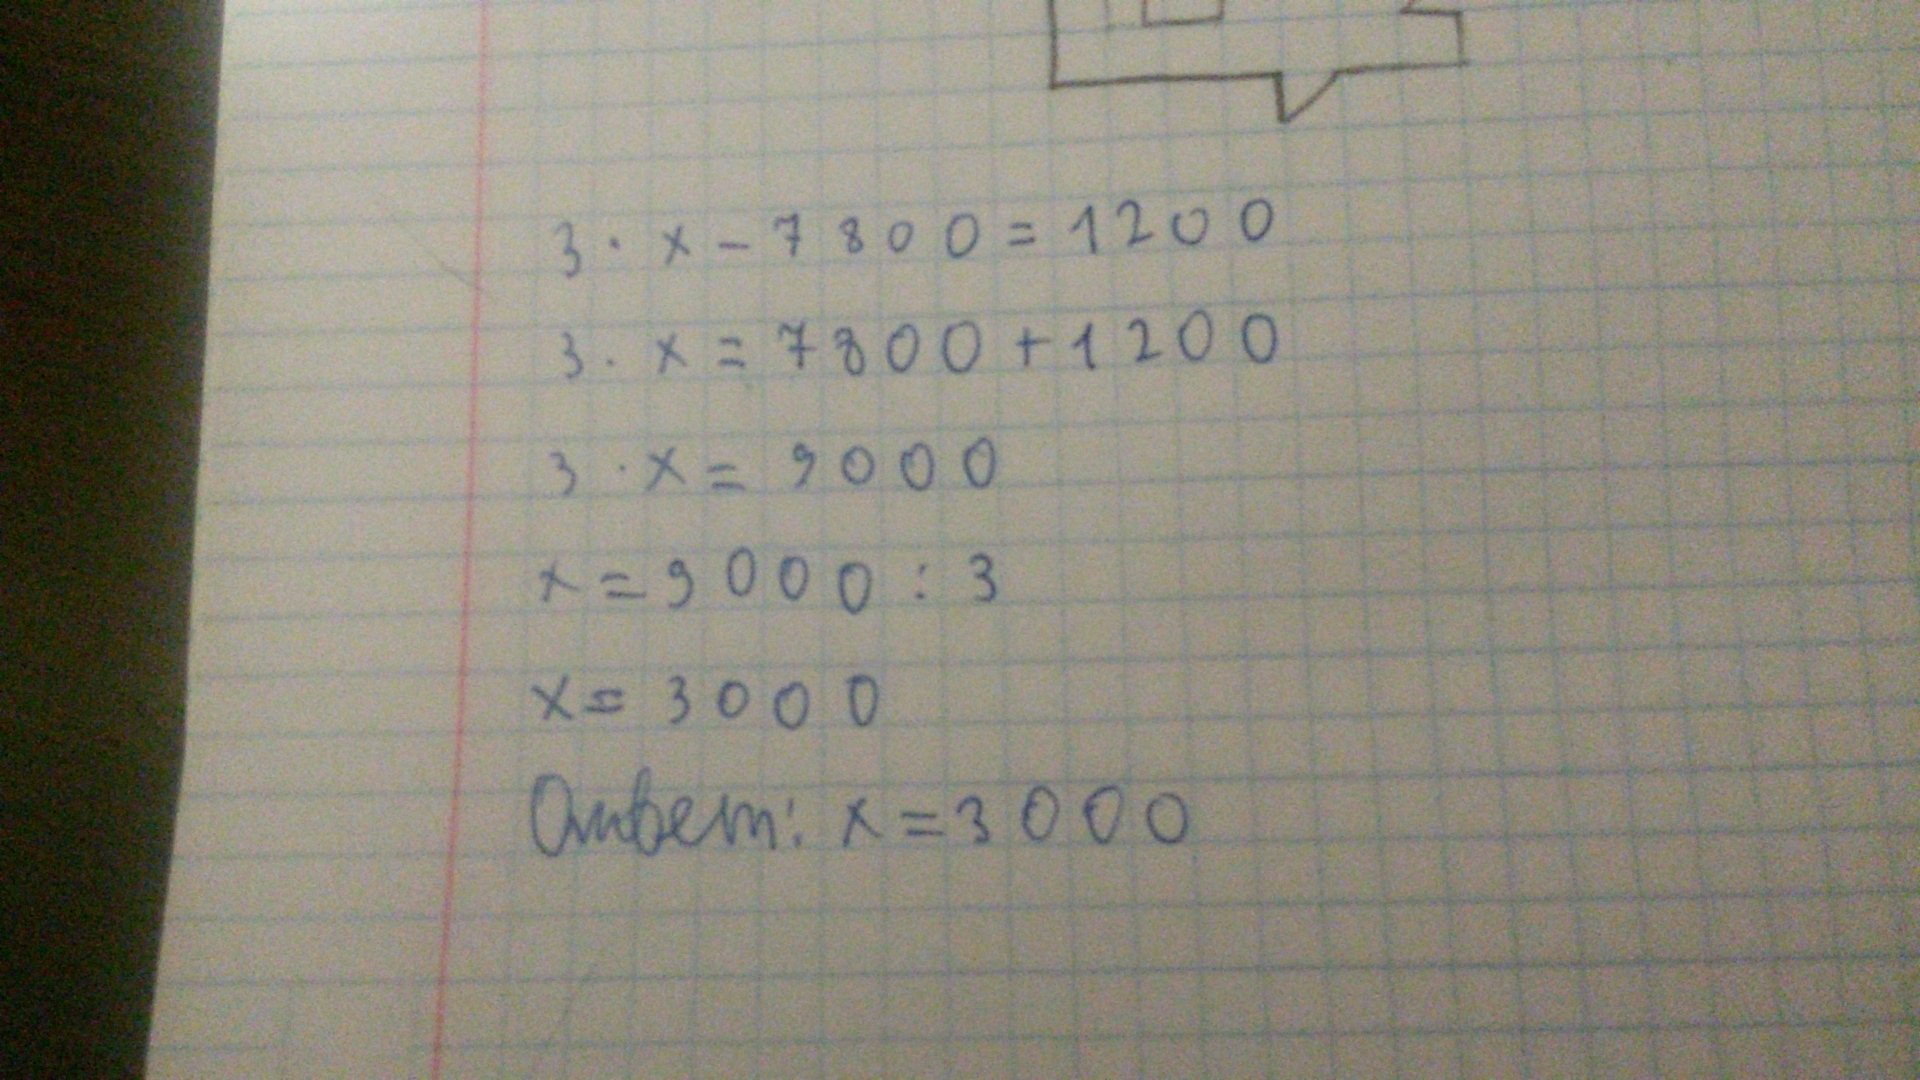 3 · x - 7800 = 1200
3 · x = 7800 + 1200
3 · x = 9000
x = 9000 : 3
x = 3000
Ответ: x = 3000